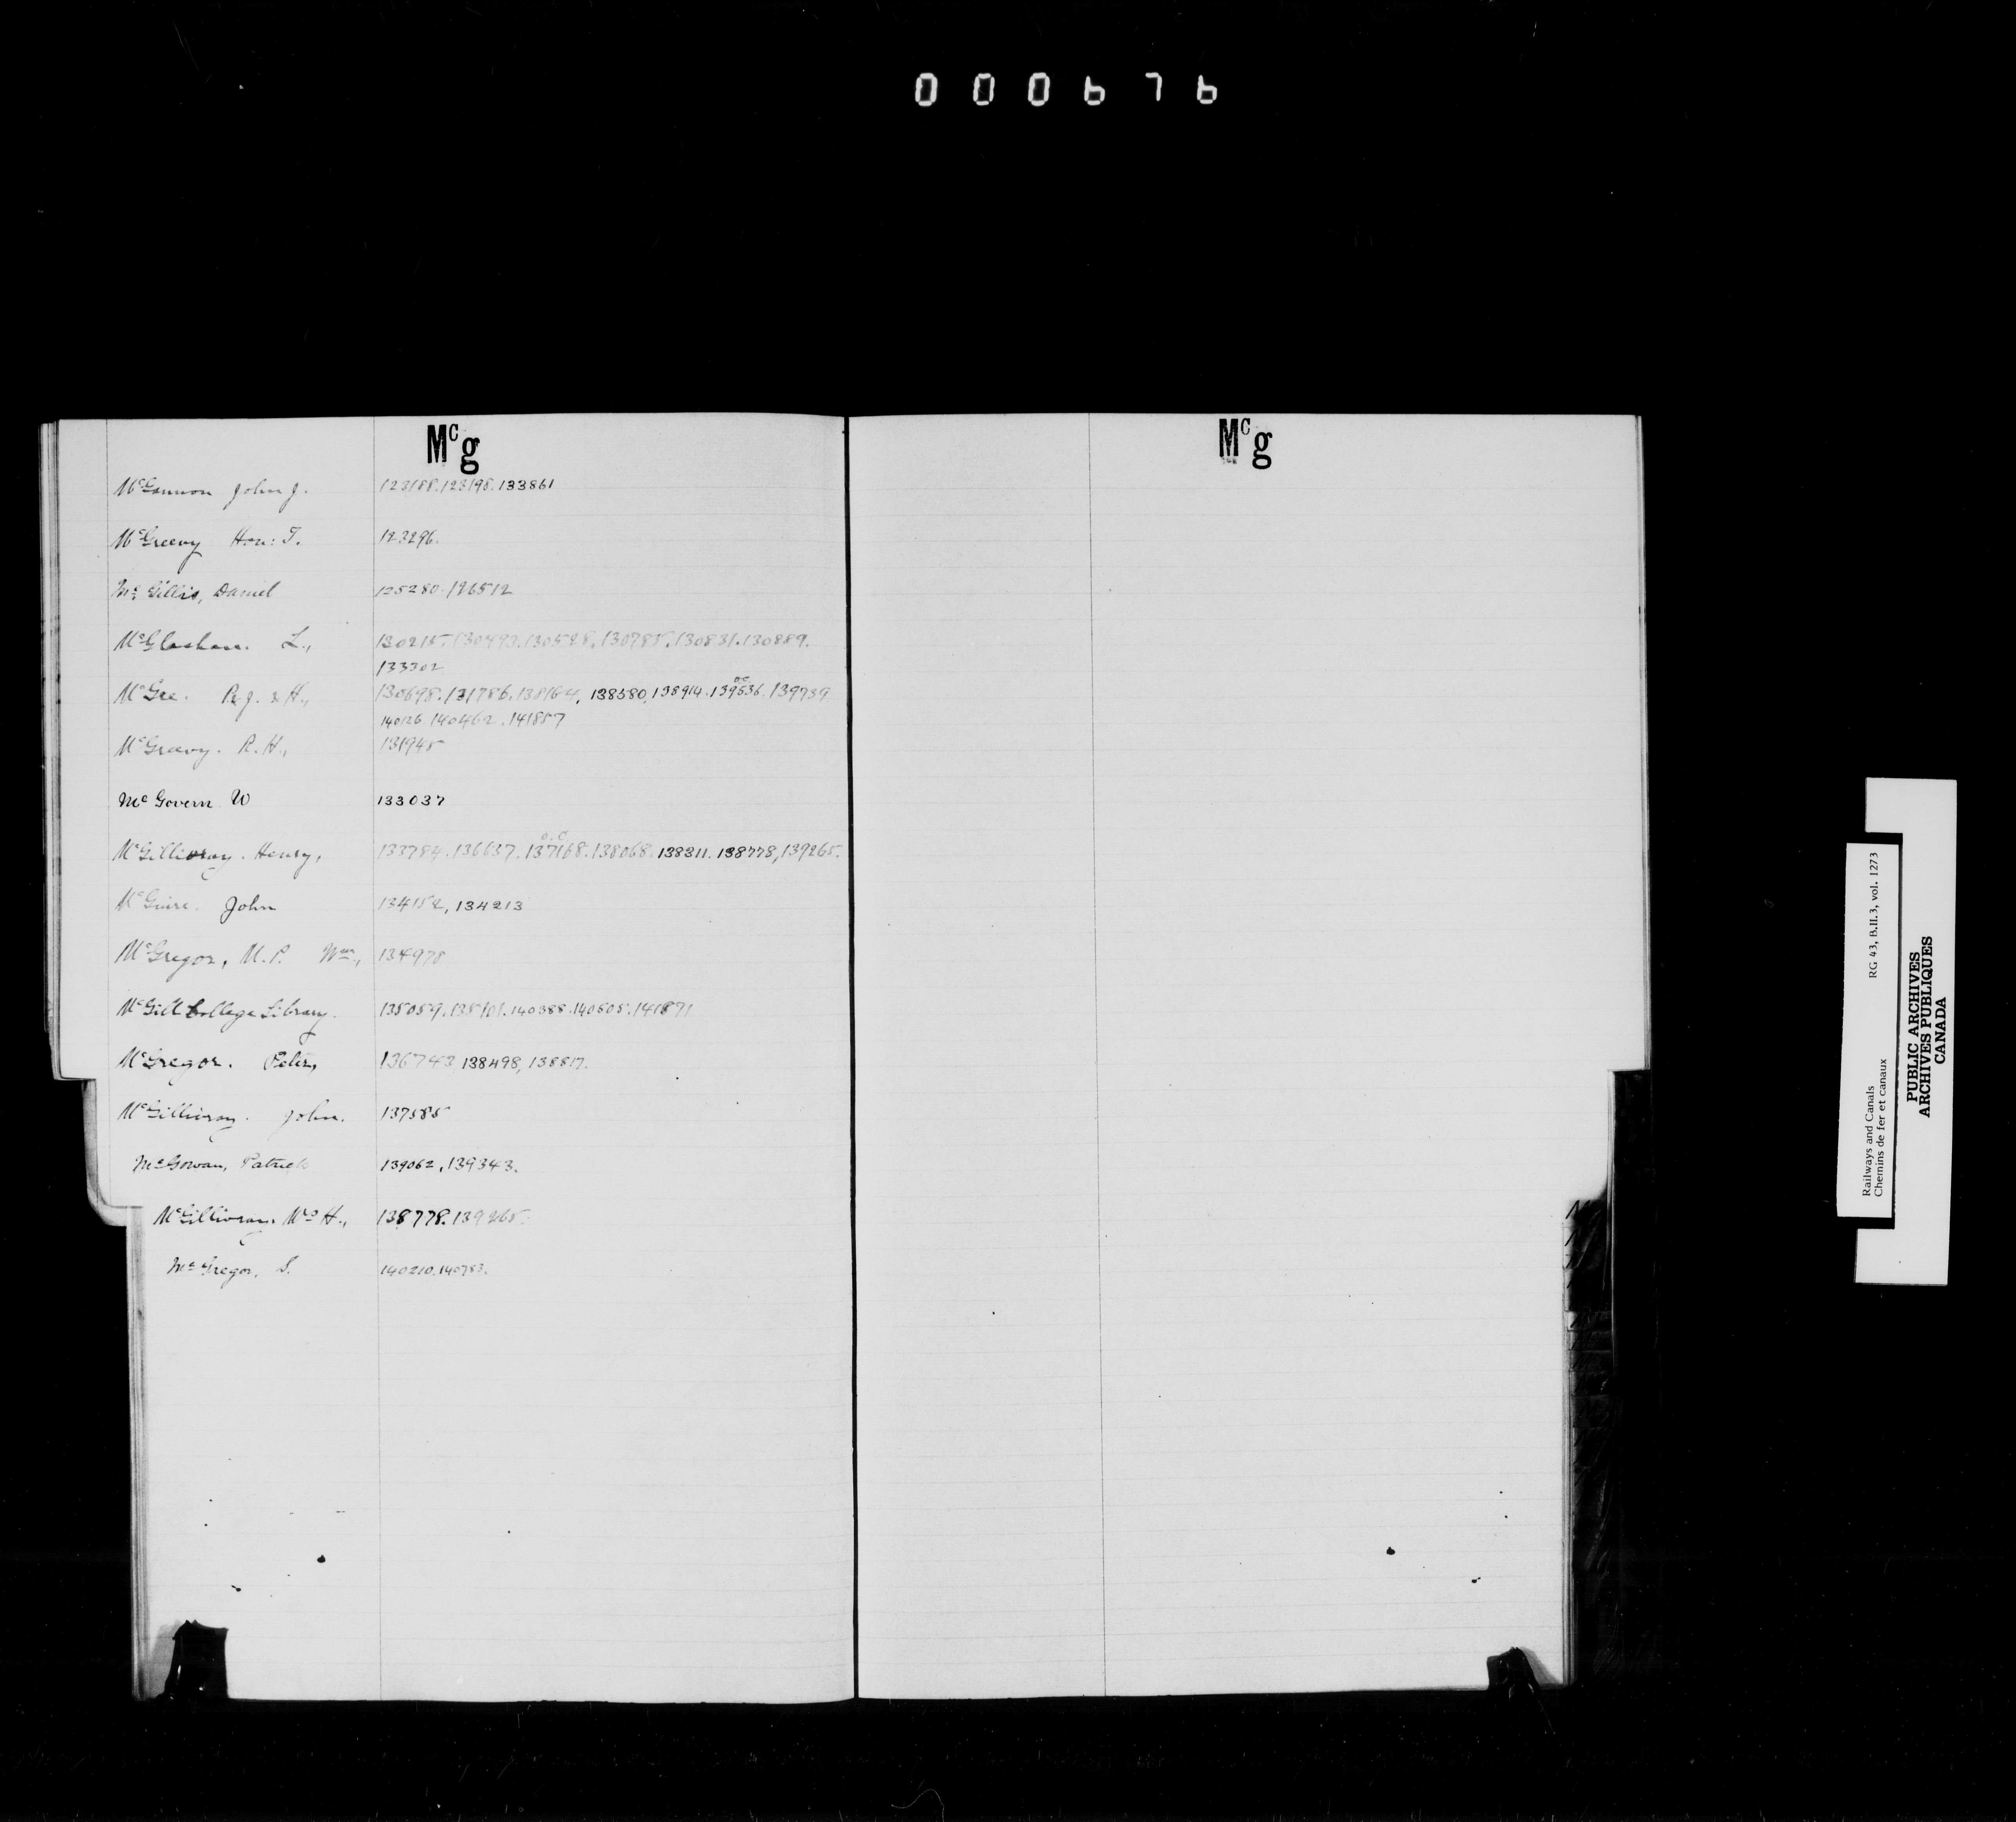 000676
Mcg
Mcg
McGannon John J. 123188. 123198. 133861
McGreevy Hon: T. 123296.
McGillis, Daniel 125280. 126512
McGlashan. L., 130215. 130493. 130528. 130785. 130831. 130889.
133302
McGee. R.J. & H., 130698. 131786. 138164, 138580, 138914. 139536. 139739
O.C
140126. 140462. 141857
McGreevy. R.H., 131945
McGovern W 133037
O.C
McGillivray. Henry, 133784. 136637. 137168. 138068. 138311. 138778, 139265.
McGuire. John 134152, 134213
McGregor, M.P. Wm., 134978
McGill College Library. 135059. 135101. 140388. 140505. 141871
McGregor. Peter, 136743, 138498, 138817.
McGillivray. John. 137585
McGowan, Patrick 139062, 139343.
McGillivray. H., 138778. 139265.
McGregor, 140210. 140783.
Railways and Canals RG 43, B.II.3, vol. 1273
Chemins de fer et canaux
PUBLIC ARCHIVES
ARCHIVES PUBLIQUES
CANADA